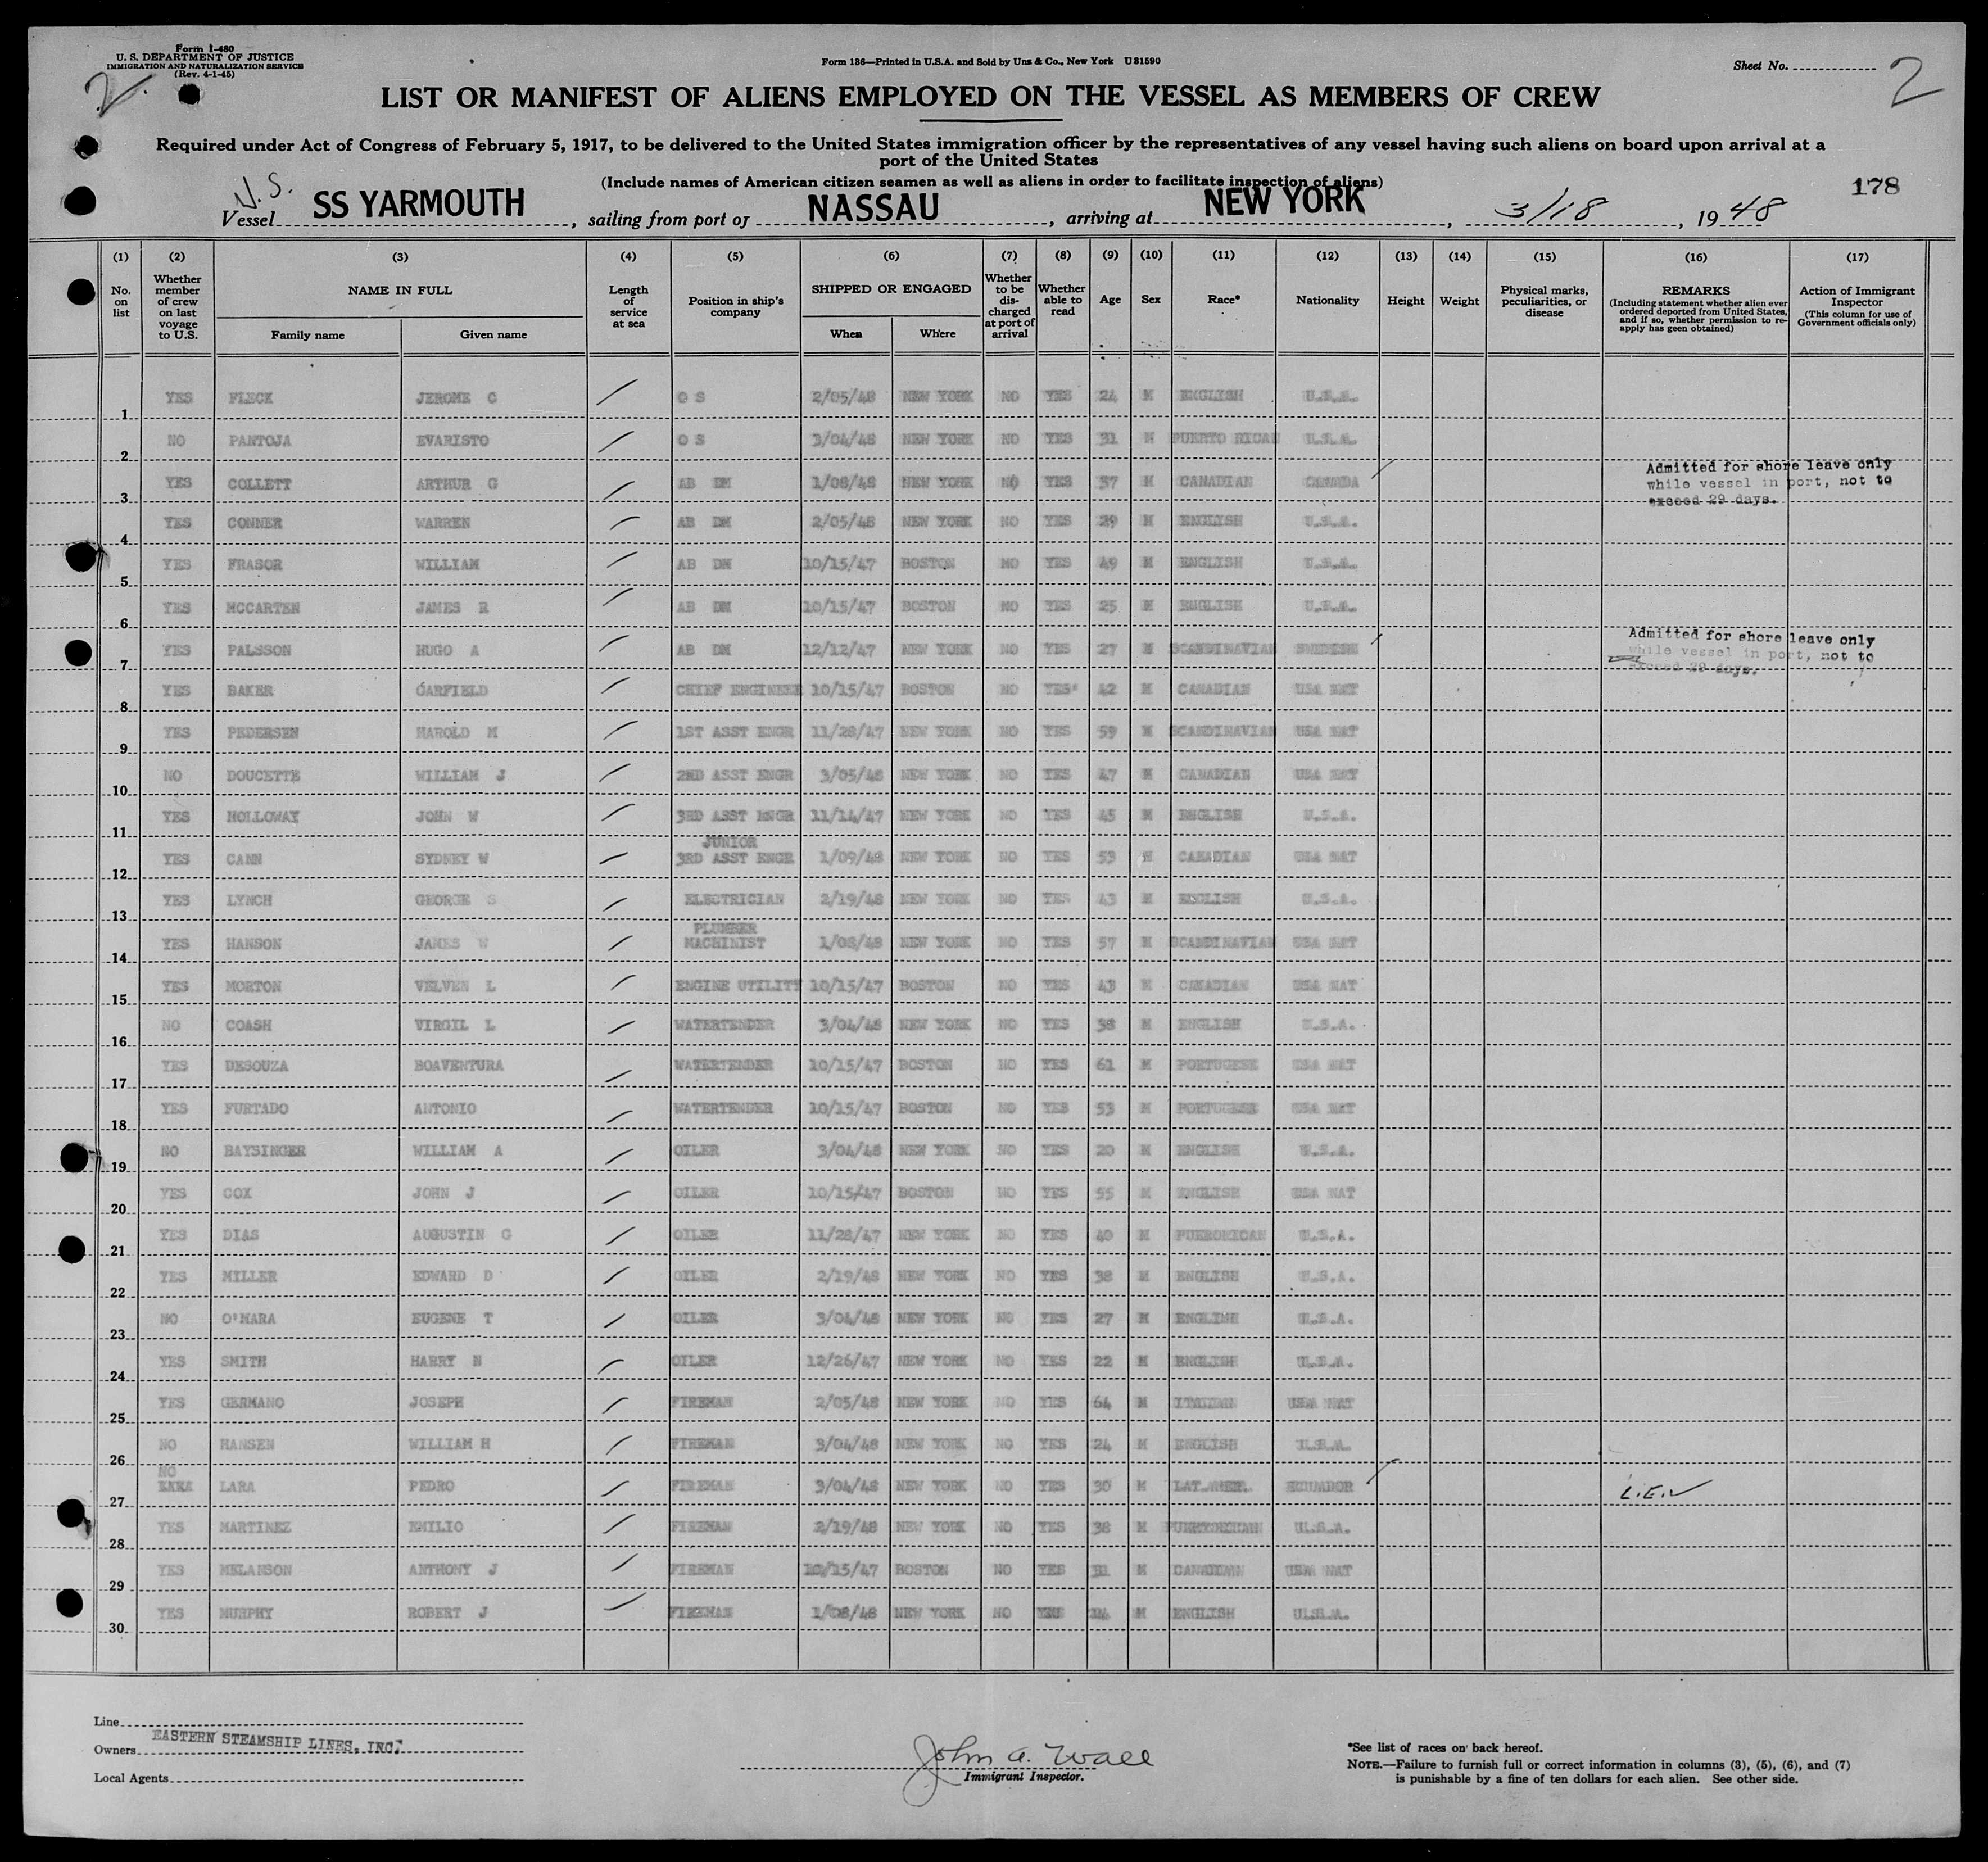 Form I-480
U. S. DEPARTMENT OF JUSTICE
IMMIGRATION AND NATURALIZATION SERVICE
(Rev. 4-1-45)
Form 136—Printed in U.S.A. and Sold by Unz & Co., New York U 31590
Sheet No.
2
2
LIST OR MANIFEST OF ALIENS EMPLOYED ON THE VESSEL AS MEMBERS OF CREW
Required under Act of Congress of February 5, 1917, to be delivered to the United States immigration officer by the representatives of any vessel having such aliens on board upon arrival at a
port of the United States
(Include names of American citizen seamen as well as aliens in order to facilitate inspection of aliens)
178
Vessel SS YARMOUTH, sailing from port of NASSAU, arriving at NEW YORK, 3/18, 1948
(1) (2) (3) (4) (5) (6) (7) (8) (9) (10) (11) (12) (13) (14) (15) (16) (17)
No. on list
Whether member of crew on last voyage to U.S.
NAME IN FULL
Family name
Given name
Length of service at sea
Position in ship's company
SHIPPED OR ENGAGED
When
Where
Whether to be dis-charged at port of arrival
Whether able to read
Age
Sex
Race*
Nationality
Height
Weight
Physical marks, peculiarities, or disease
REMARKS
(Including statement whether alien ever ordered deported from United States, and if so, whether permission to re-apply has geen obtained)
Action of Immigrant Inspector
(This column for use of Government officials only)
1 YES FLECK JEROME C O S 2/05/48 NEW YORK NO YES 24 M ENGLISH U.S.A.
2 NO PANTOJA EVARISTO O S 3/04/48 NEW YORK NO YES 31 M PUERTO RICAN U.S.A.
3 YES COLLETT ARTHUR G AB DM 1/08/48 NEW YORK NO YES 37 M CANADIAN CANADA Admitted for shore leave only
while vessel in port, not to
exceed 29 days.
4 YES CONNER WARREN AB DM 2/05/48 NEW YORK NO YES 29 M ENGLISH U.S.A.
5 YES FRASOR WILLIAM AB DM 10/15/47 BOSTON NO YES 49 M ENGLISH U.S.A.
6 YES MCCARTEN JAMES R AB DM 10/15/47 BOSTON NO YES 25 M ENGLISH U.S.A.
7 YES PALSSON HUGO A AB DM 12/12/47 NEW YORK NO YES 27 M SCANDINAVIAN SWEDISH Admitted for shore leave only
while vessel in port, not to
exceed 29 days.
8 YES BAKER GARFIELD CHIEF ENGINEER 10/15/47 BOSTON NO YES 42 M CANADIAN USA NAT
9 YES PEDERSEN HAROLD M 1ST ASST ENGR 11/28/47 NEW YORK NO YES 59 M SCANDINAVIAN USA NAT
10 NO DOUCETTE WILLIAM J 2ND ASST ENGR 3/05/48 NEW YORK NO YES 47 M CANADIAN USA NAT
11 YES HOLLOWAY JOHN W 3RD ASST ENGR 11/14/47 NEW YORK NO YES 45 M ENGLISH U.S.A.
12 YES CANN SYDNEY W JUNIOR 3RD ASST ENGR 1/09/48 NEW YORK NO YES 53 M CANADIAN USA NAT
13 YES LYNCH GEORGE S ELECTRICIAN 2/19/48 NEW YORK NO YES 43 M ENGLISH U.S.A.
14 YES HANSON JAMES W PLUMBER MACHINIST 1/08/48 NEW YORK NO YES 57 M SCANDINAVIAN USA NAT
15 YES MORTON VELVEN L ENGINE UTILITY 10/15/47 BOSTON NO YES 43 M CANADIAN USA NAT
16 NO COASH VIRGIL L WATERTENDER 3/04/48 NEW YORK NO YES 38 M ENGLISH U.S.A.
17 YES DESOUZA BOAVENTURA WATERTENDER 10/15/47 BOSTON NO YES 61 M PORTUGESE USA NAT
18 YES FURTADO ANTONIO WATERTENDER 10/15/47 BOSTON NO YES 53 M PORTUGESE USA NAT
19 NO BAYSINGER WILLIAM A OILER 3/04/48 NEW YORK NO YES 20 M ENGLISH U.S.A.
20 YES COX JOHN J OILER 10/15/47 BOSTON NO YES 55 M ENGLISH USA NAT
21 YES DIAS AUGUSTIN G OILER 11/28/47 NEW YORK NO YES 40 M U.S.A.
22 YES MILLER EDWARD D OILER 2/19/48 NEW YORK NO YES 38 M ENGLISH U.S.A.
23 NO O'MARA EUGENE T OILER 3/04/48 NEW YORK NO YES 27 M ENGLISH U.S.A.
24 YES SMITH HARRY N OILER 12/26/47 NEW YORK NO YES 22 M ENGLISH U.S.A.
25 YES GERMANO JOSEPH FIREMAN 2/05/48 NEW YORK NO YES 64 M ITALIAN USA NAT
26 NO HANSEN WILLIAM H FIREMAN 3/04/48 NEW YORK NO YES 24 M ENGLISH U.S.A.
27 NO LARA PEDRO FIREMAN 3/04/48 NEW YORK NO YES 30 M LAT.AMER. ECUADOR
28 YES MARTINEZ EMILIO FIREMAN 2/19/48 NEW YORK NO YES 38 M U.S.A.
29 YES MELANSON ANTHONY J FIREMAN 10/15/47 BOSTON NO YES 31 M CANADIAN USA NAT
30 YES MURPHY ROBERT J FIREMAN 1/08/48 NEW YORK NO YES M ENGLISH U.S.A.
Line
Owners EASTERN STEAMSHIP LINES, INC.
Local Agents
John A. Wall
Immigrant Inspector.
*See list of races on back hereof.
NOTE.—Failure to furnish full or correct information in columns (3), (5), (6), and (7)
is punishable by a fine of ten dollars for each alien. See other side.